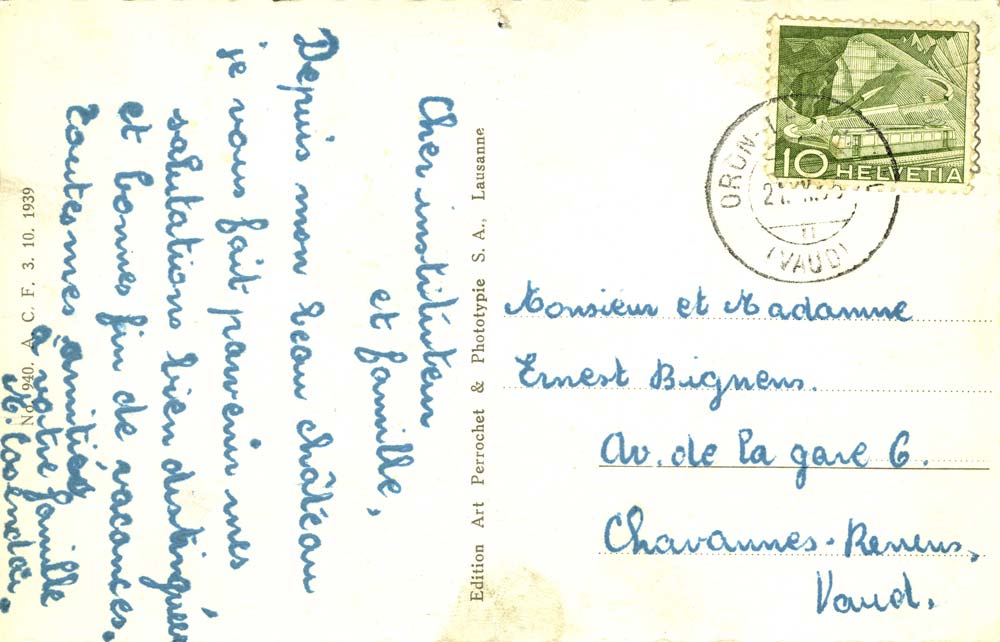 Cher institúteur
et famille,
Depuis mon beau château
je vous fait parvenir mes
salutations bien distinguées
et bonnes fin de vacances.
Toutes mes amitiés
à votre famille
No 940. A. C. F. 3. 10. 1939
Edition Art Perrochet & Phototypie S. A., Lausanne
10 HELVETIA
ORON-
(VAUD)
Monsieur et Madamme
Ernest Bignens.
Av. de la gare 6.
Chavannes-Renens,
Vaud.